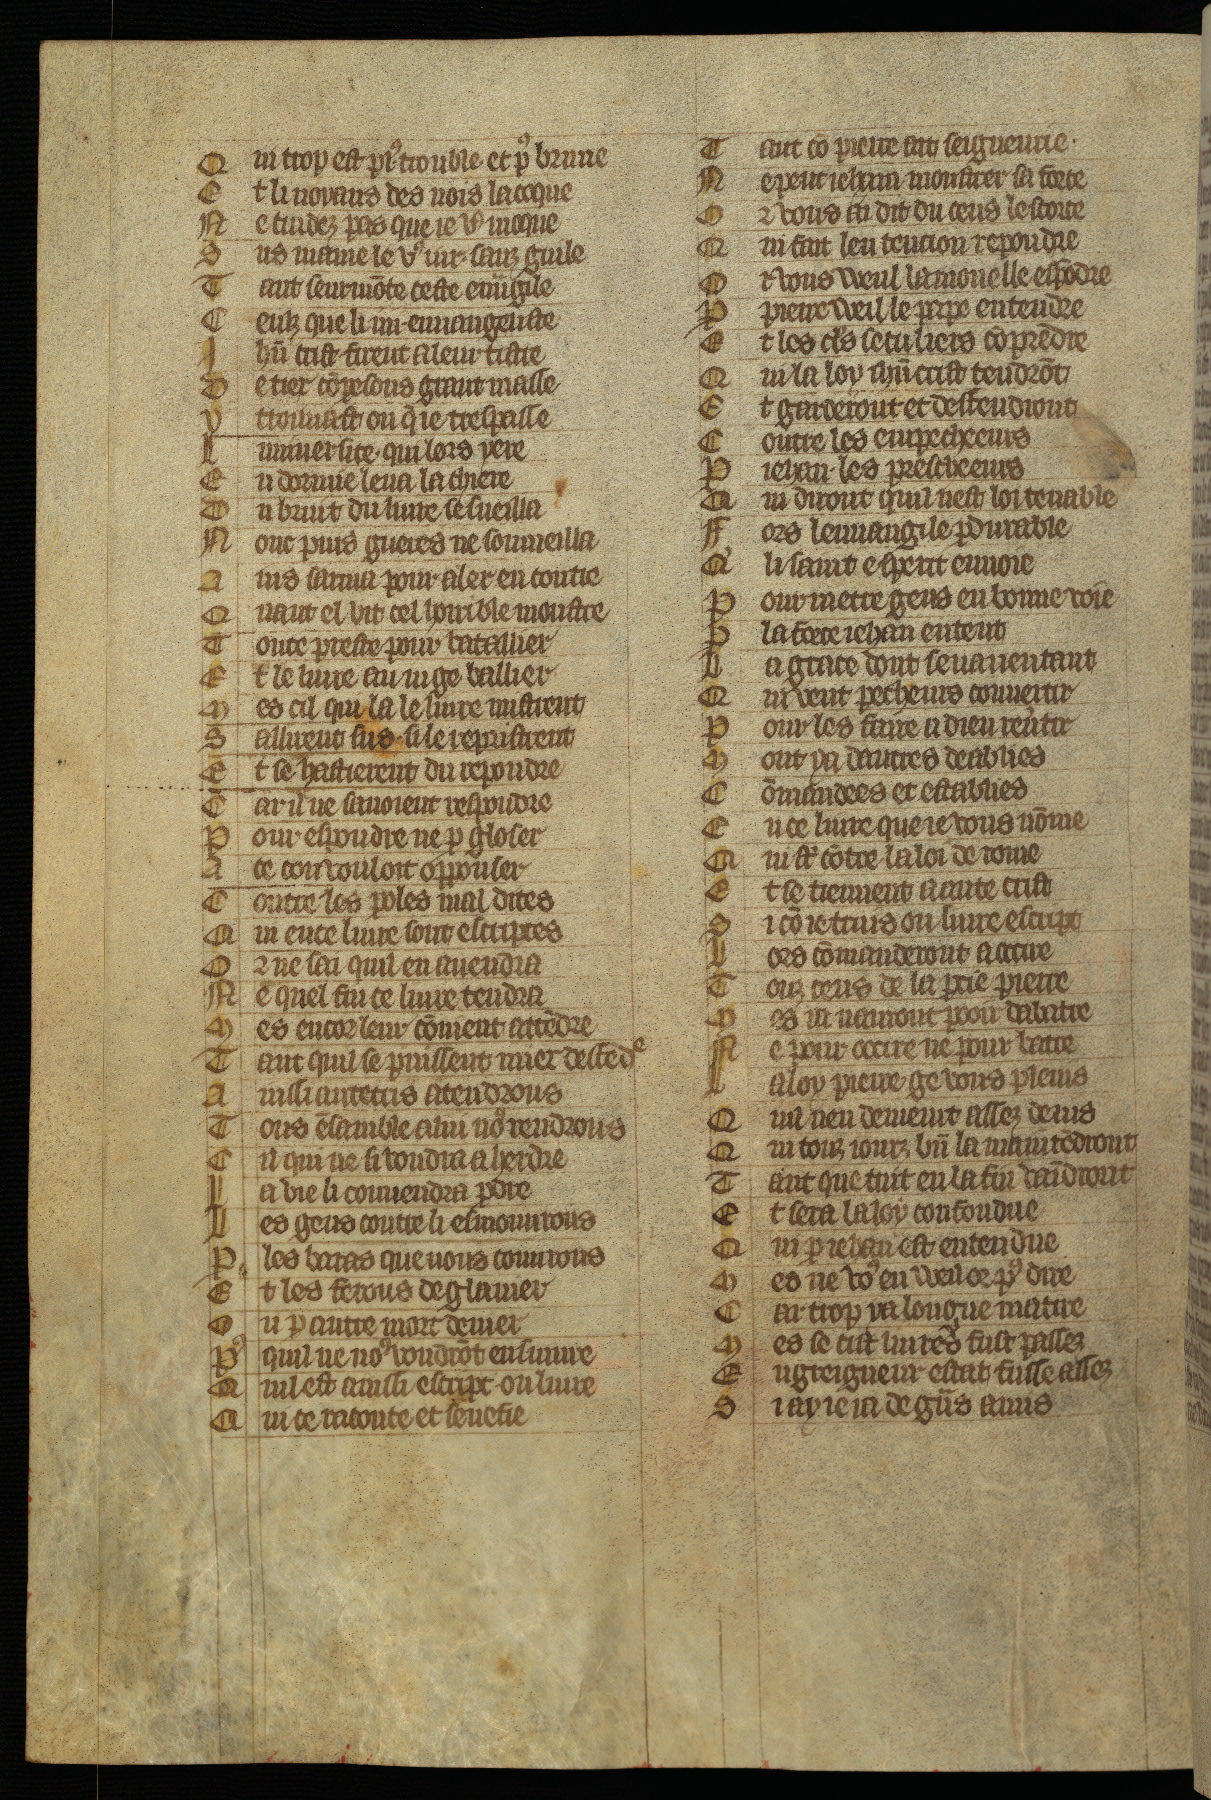 Qui trop est pl᷒ trouble et pl᷒ brune
Et li noyaus des nois la coque
Ne cuidez pas que ie v᷒ moque
Sus mame le v᷒ iur sanz guile
Tant seurmōte ceste euūgile
Ceulz que li .iiii. euuangeliste
Ihū crist firent a leur tistre
De tiex cōpesons grant masse
y trouuast on q̄ ie trespasse
Luniuersite qui lors yere
Endormie leua la chiere
Du bruit du liure sesueilla
Nonc puis gueres ne sommeilla
Ains sarma pour aler encontre
Quant el vit cel horrible monstre
Toute preste pour bataillier
Et le liure au iuge baillier
Mes cil qui la le liure mistrent
Saillirent sus si le repristrent
Et se hasterent du repondre
Car il ne sauoient respondre
Pour espondre ne p gloser
A ce con vouloit opposer
Contre les poles mal dites
Qui en ce liure sont escriptes
Or ne sai quil en auendra
Ne quel fin ce liure tendra
Mes encor leur cōment attēdre
Tant quil se puissent miex deffēdᵉ
Ainssi antecris atendrons
Tous ēsamble a lui no᷒ rendrons
Cil qui ne si voudra aherdre
La vie li conuendra pdre
Les gens contre li esmouurons
P les baras que nous couurons
Et les ferons deglauier
Ou p autre mort deuier
P᷒ quil ne no᷒ voudrōt ensuiure
Quil est ainssi escript ou liure
Qui ce raconte et senefie
Tant cō pierre ait seigneurie.
Ne peut iehan monstrer sa force
Or vous ai dit du cens lescorce
Qui fait lentencion repondre
Or vous weul la mouelle espōdre
P pierre weil le pape entendre
Et les cl's seculiers cōprēdre
Qui la loy ihū crist tendrōt
Et garderont et deffendront
Contre les empecheeurs
P iehan les prescheeurs
Qui diront quil nest loi tenable
Fors leuuangile pdurable
Q' li saint esperit enuoie
Pour mettre gens en bonne voie
P la force iehan entent
La grace dont se va uentant
Qui veut pecheurs conuertir
Pour les faire a dieu reūtir
Mout ya dautres deablies
Cōmandees et establies
En ce liure que ie vous nōme
Qui st cōtre la loi de rome
Et se tiennent a ante crist
Si cō ie truis ou liure escript
Lors cōmanderont a occire
Touz ceus de la ptie pierre
Mes ia nauront pooir dabatre
Ne pour occire ne pour batre
La loy pierre ge vous pleuis
Quil nen demeurt assez de uis
Qui touz iourz bn̄ la maintēdront
Tant que tuit en la fin vān̄dront
Et sera la loy confondue
Qui p iehan est entendue
Mes ne vo᷒ en weil or pl᷒ dire
Car trop ya longue matire
Mes se cist liures fust passez
En greigneur estat fusse assez
Si ay ie ia de gn̄s amis